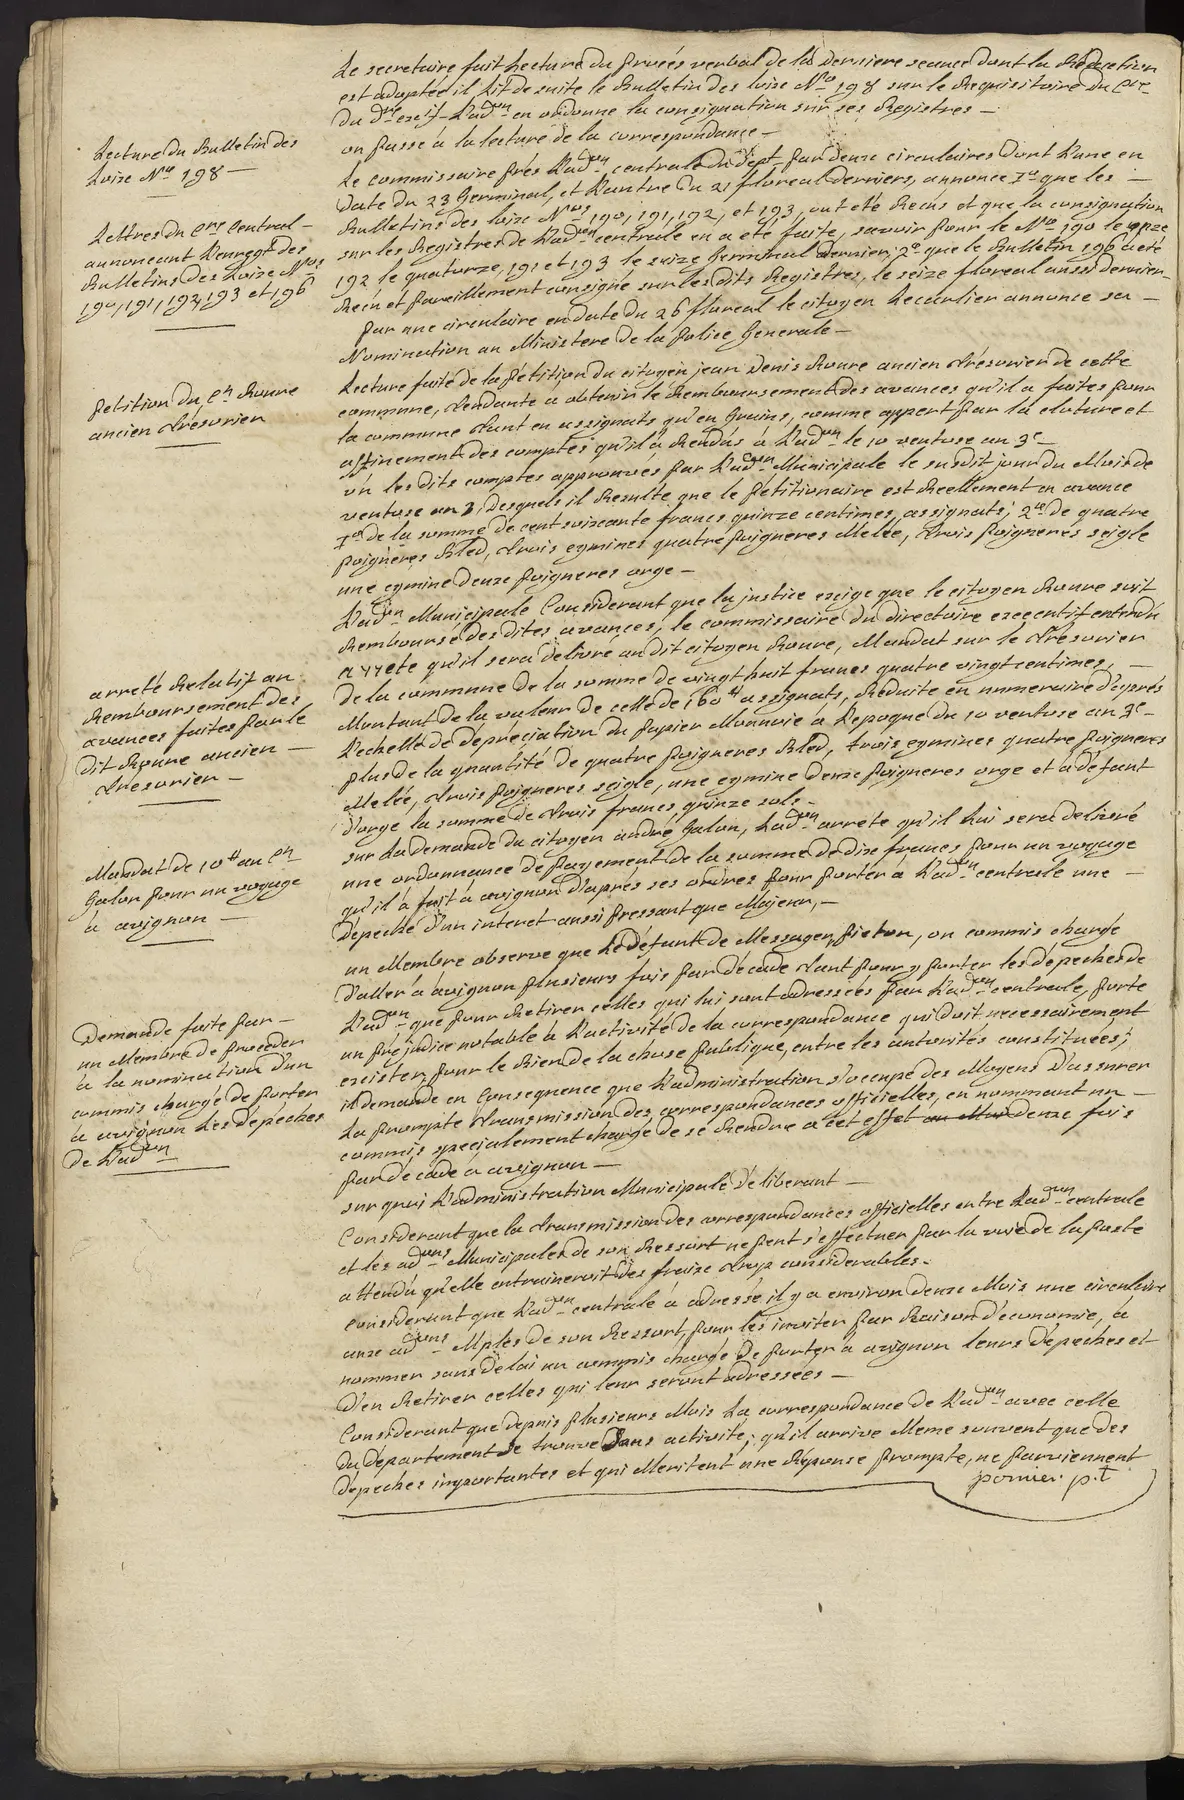 Le secretaire fait Lecture du procés verbal de la derniere seance dont la Rédaction
est adoptée il lit de suite le Bulletin des loix N.ro 198 sur le Requisitoire du C.re
du d.re exe.if L'ad.on en ordonne la consignation sur ses Registres —
on passe à la lecture de la correspondance —
Lecture du Bulletin des
Loix N.ro 198 —
Le commissaire prés L'ad.on centrale du dép.t par deux circulaires dont L'une en
date du 23 Germinal, et L'autre du 21 floreal derniers, annonce 1.o que les —
Bulletins des loix N.os 190, 191, 192, et 193, ont été Recus et que la consignation
sur les Registres de L'ad.on centrale en a été faite, sçavoir pour le N.ro 190 le onze
192 le quatorze, 191 et 193 le seize Germinal dernier, 2.o que le Bulletin 196 a été
Recu et pareillement consigné sur les dits Registres, le seize floreal aussi dernier —
Lettres du C.re Central —
annoncant L'enreg.t des
Bulletins des Loix N.os
190, 191, 192, 193 et 196
par une circulaire en date du 26 floreal le citoyen Lecarlier annonce sa —
Nomination au Ministere de la police Generale —
Lecture faite de la pétition du citoyen jean Denis Roure ancien trésorier de cette
commune, tendante a obtenir le Remboursement des avances qu'il a faites pour
la commune tant en assignats qu'en Grains, comme appert par la cloture et
affinement des comptes qu'il a Rendus à L'ad.on le 10 ventose an 3.e
petition du C.en Roure
ancien trésorier
vû les dits comptes approuvés par L'ad.on Municipale le susdit jour du Mois de
ventose an 3, desquels il Resulte que le pétitionaire est Reellement en avance
1.o de la somme de cent soixante francs quinze centimes, assignats; 2.o de quatre
poigneres Bled, trois eymines quatre poigneres Melée, trois poigneres seigle
une eymine deux poigneres orge —
L'ad.on Municipale Considerant que la justice exige que le citoyen Roure soit
Remboursé des dites avances, le commissaire du directoire executif entendu
arrete qu'il sera delivré au dit citoyen Roure, Mandat sur le trésorier
de la commune de la somme de vingt huit francs quatre vingt centimes, —
Montant de la valeur de celle de 160 ₶ assignats, Réduite en numeraire d'après
L'echelle de dépreciation du papier Monnoie à L'epoque du 10 ventose an 3.e —
plus de la quantité de quatre poigneres Bled, trois eymines quatre poigneres
Melée, trois poigneres seigle, une eymine deux poigneres orge et à défaut
d'orge la somme de trois francs quinze sols —
arreté Relatif au
Remboursement des
avances faites par le
dit Roure ancien —
trésorier —
sur La demande du citoyen andré Galon, L'ad.on arrete qu'il Lui sera delivré
une ordonnance de payement de la somme de dix francs pour un voyage
qu'il à fait à avignon d'aprés ses ordres pour porter à L'ad.on centrale une —
dépeche d'un interet aussi pressant que Majeur, —
Mandat de 10 ₶ au C.en
Galon pour un voyage
à avignon —
un Membre observe que Le défaut de Messager, pieton, ou commis chargé
d'aller à avignon plusieurs fois par décade tant pour y porter les dépeches de
L'ad.on que pour Retirer celles qui lui sont adressées par L'ad.on centrale, porte
un préjudice notable à L'activité de la correspondance qui doit necessairement
exister pour le Bien de la chose publique, entre les autorités constituées;
il demande en Consequence que L'administration s'occupe des Moyens d'assurer
La prompte transmission des correspondances officielles, en nommant un —
commis specialement chargé de se Rendre a cet effet au Mois deux fois
par décade à avignon —
Demande faite par —
un Membre de proceder
à la nomination d'un
commis chargé de porter
à avignon Les dépeches
de L'ad.on
sur quoi L'administration Municipale déliberant —
Considerant que la transmission des correspondances officielles entre L'ad.on centrale
et les ad.ons Municipales de son Ressort ne peut s'effectuer par la voie de la poste
attendu qu'elle entraineroit des fraix trop considerables —
Considerant que L'ad.on centrale à adressé il y a environ deux Mois une circulaire
aux ad.ons Mples de son Ressort, pour les inviter par Raison d'économie, à
nommer sans délai un commis chargé de porter à avignon leurs dépeches et
D'en Retirer celles qui leur seront adressées —
Considerant que depuis plusieurs Mois La correspondance de L'ad.on avec celle
du département se trouve Sans activité; qu'il arrive Meme souvent que des
dépeches importantes et qui Meritent une Réponse prompte, ne parviennent